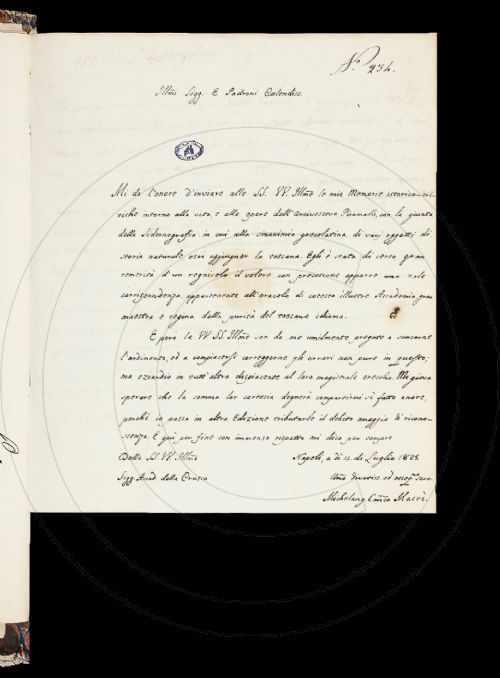 N.° 234.
Illmi Sigg. E Padroni Colendiss.
Mi do l'onore d'inviare alle SS. VV. Illme le mie Memorie istorico-cri-
tiche intorno alla vita, e alle opere dell'Arcivescovo Piromalli, con la giunta
della Sidernografia: in cui alla sinonimia grecolatina di varj oggetti di
storia naturale osai aggiugner la toscana. Egli è stata di certo gran
temerità d'un regnicolo il volere con precisione apporre una tale
corrispondenza, appartenente all'oracolo di cotesta illustre Accademia, gran
maestra e regina della purità del toscano idioma.
E però le VV. SS. Illme son da me umilmente pregate a scusarne
l'ardimento, ed a compiacersi correggerne gli errori non pure in questo;
ma eziandio in tutt'altro dispiacente al loro magistrale orecchio. Mi giova
sperare che la somma lor cortesia degnerà compartirmi sì fatto onore,
perchè io possa in altra edizione tributarle il debito omaggio di ricono-
scenza. E qui per fine con immenso rispetto mi dico per sempre
Delle SS. VV. Illme
Napoli, a dì 15. di Luglio 1828.
Sigg. Accad. della Crusca
Umo divotiss. ed osseqo serv.
Michelang. Canco Macrì.